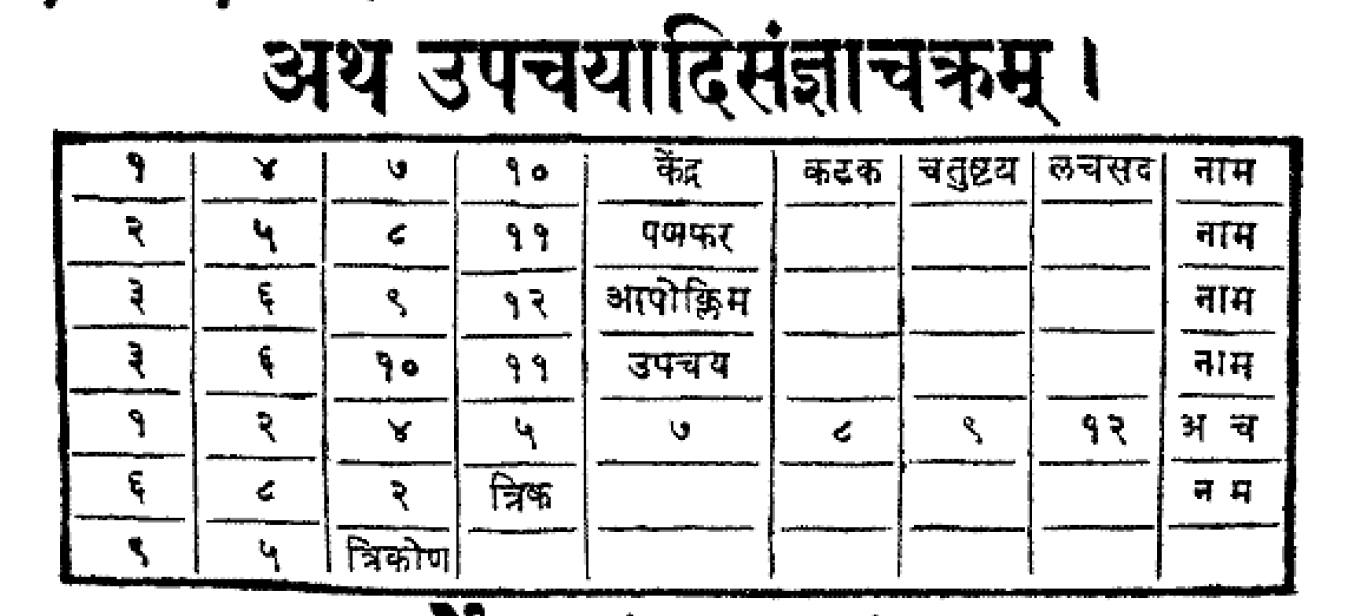 अथ उपचयादिसंज्ञाचक्रम् ।
१ ४ ७ १० केंद्र कटक चतुष्टय लचसद नाम
२ ५ ८ ११ पणफर नाम
३ ६ ९ १२ आपोक्लिम नाम
३ ६ १० ११ उपचय नाम
१ २ ४ ५ ७ ८ ९ १२ अ च
६ ८ २ त्रिक न म
९ ५ त्रिकोण